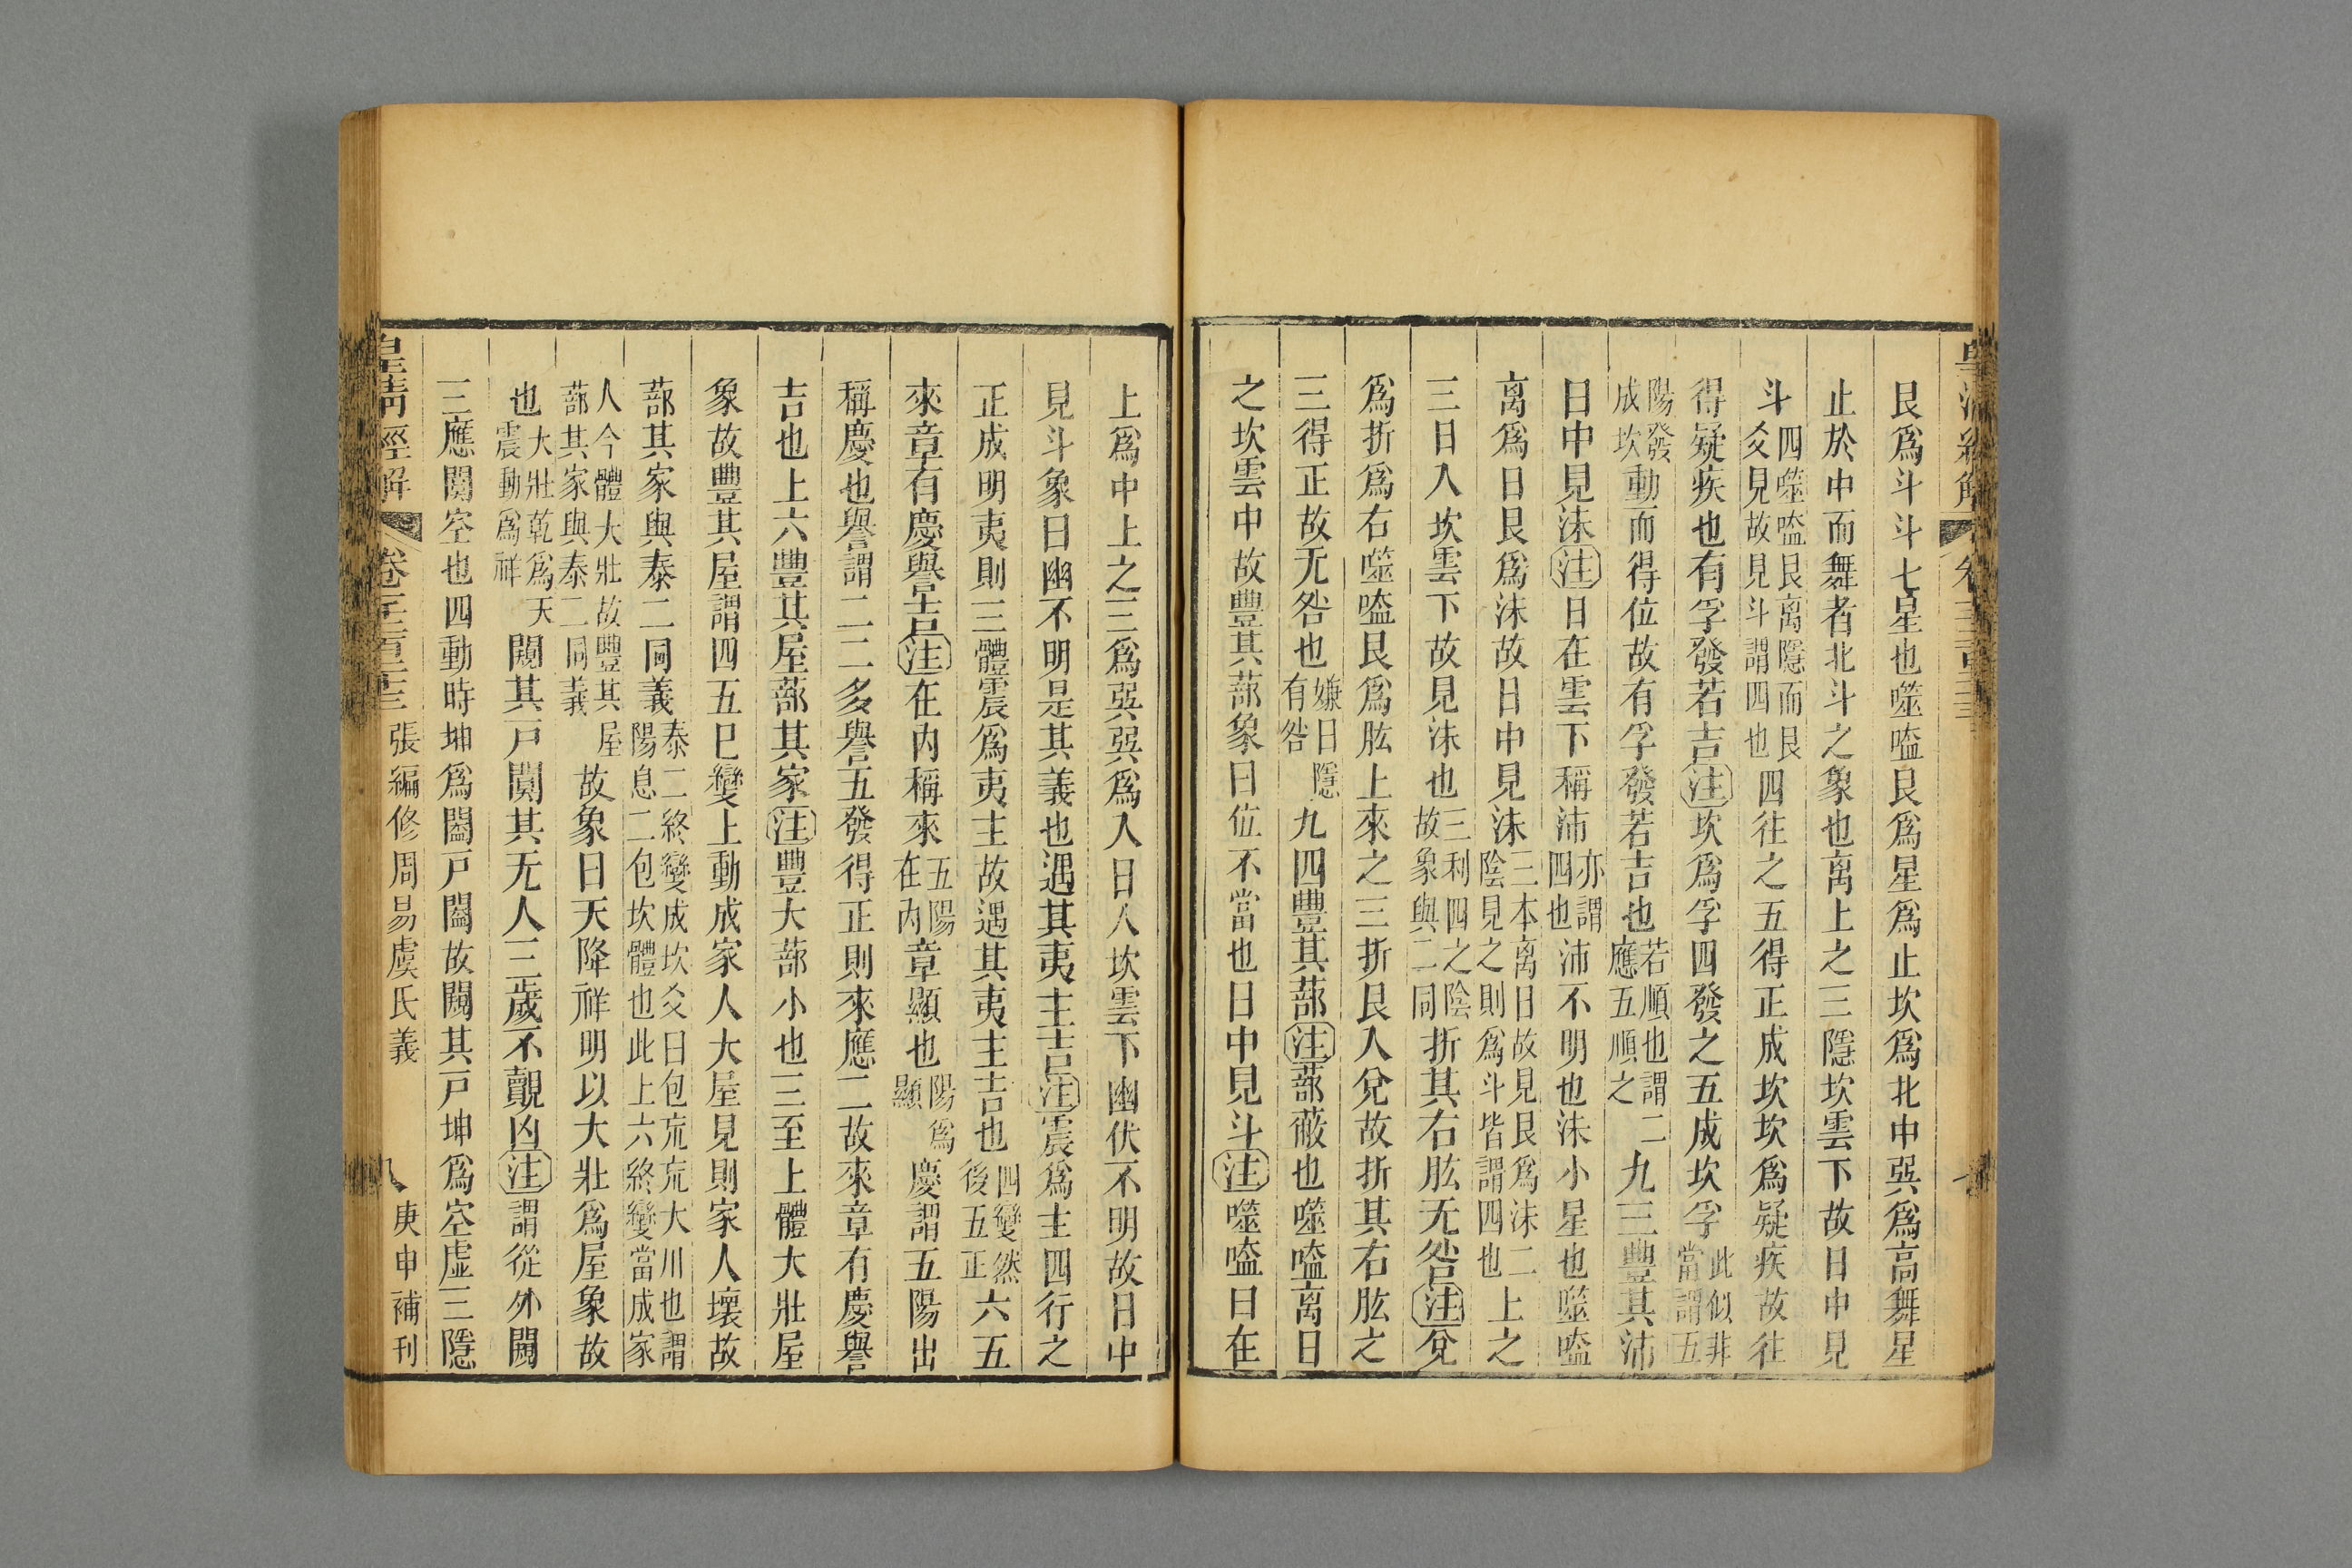 艮爲斗斗七星也噬嗑艮爲星爲止坎爲北中巽爲高舞星
止於中而舞者北斗之象也离上之三隱坎雲下故日中見
斗四噬嗑艮离隱而艮爻見故見斗謂四也四往之五得正成坎坎爲疑疾故往
得疑疾也有孚發若吉注坎爲孚四發之五成坎孚此似非當謂五
陽發成坎動而得位故有孚發若吉也若順也謂應五順之二九三豐其沛
日中見沬注日在雲下稱沛亦謂四也沛不明也沬小星也噬嗑
离爲日艮爲沬故日中見沬三本离日故見艮爲沬二陰見之則爲斗皆謂四也上之
三日入坎雲下故見沬也三利四之陰故象與二同折其右肱无咎注兌
爲折爲右噬嗑艮爲肱上來之三折艮入兌故折其右肱之
三得正故无咎也嫌日隱有咎九四豐其蔀注蔀蔽也噬嗑离日
之坎雲中故豐其蔀象曰位不當也日中見斗注噬嗑日在
上爲中上之三爲巽巽爲入日入坎雲下幽伏不明故日中
見斗象曰幽不明是其義也遇其夷主吉注震爲主四行之
正成明夷則三體震爲夷主故遇其夷主吉也四變然後五正六五
來章有慶譽吉注在內稱來五陽在內章顯也陽爲顯慶謂五陽出
稱慶也譽謂二二多譽五發得正則來應二故來章有慶譽
吉也上六豐其屋蔀其家注豐大蔀小也三至上體大壯屋
象故豐其屋謂四五巳變上動成家人大屋見則家人壞故
蔀其家與泰二同義泰二終變成坎爻曰包巟巟大川也謂陽息二包坎體也此上六終變當成家
人今體大壯故豐其屋蔀其家與泰二同義故象曰天降祥明以大壯爲屋象故
也大壯乾爲天震動爲祥闚其戸闃其无人三歲不覿凶注謂從外闚
三應闃空也四動時坤爲闔戸闔故闚其戸坤爲空虛三隱
皇清經解
張編修周易虞氏義
庚申補刊